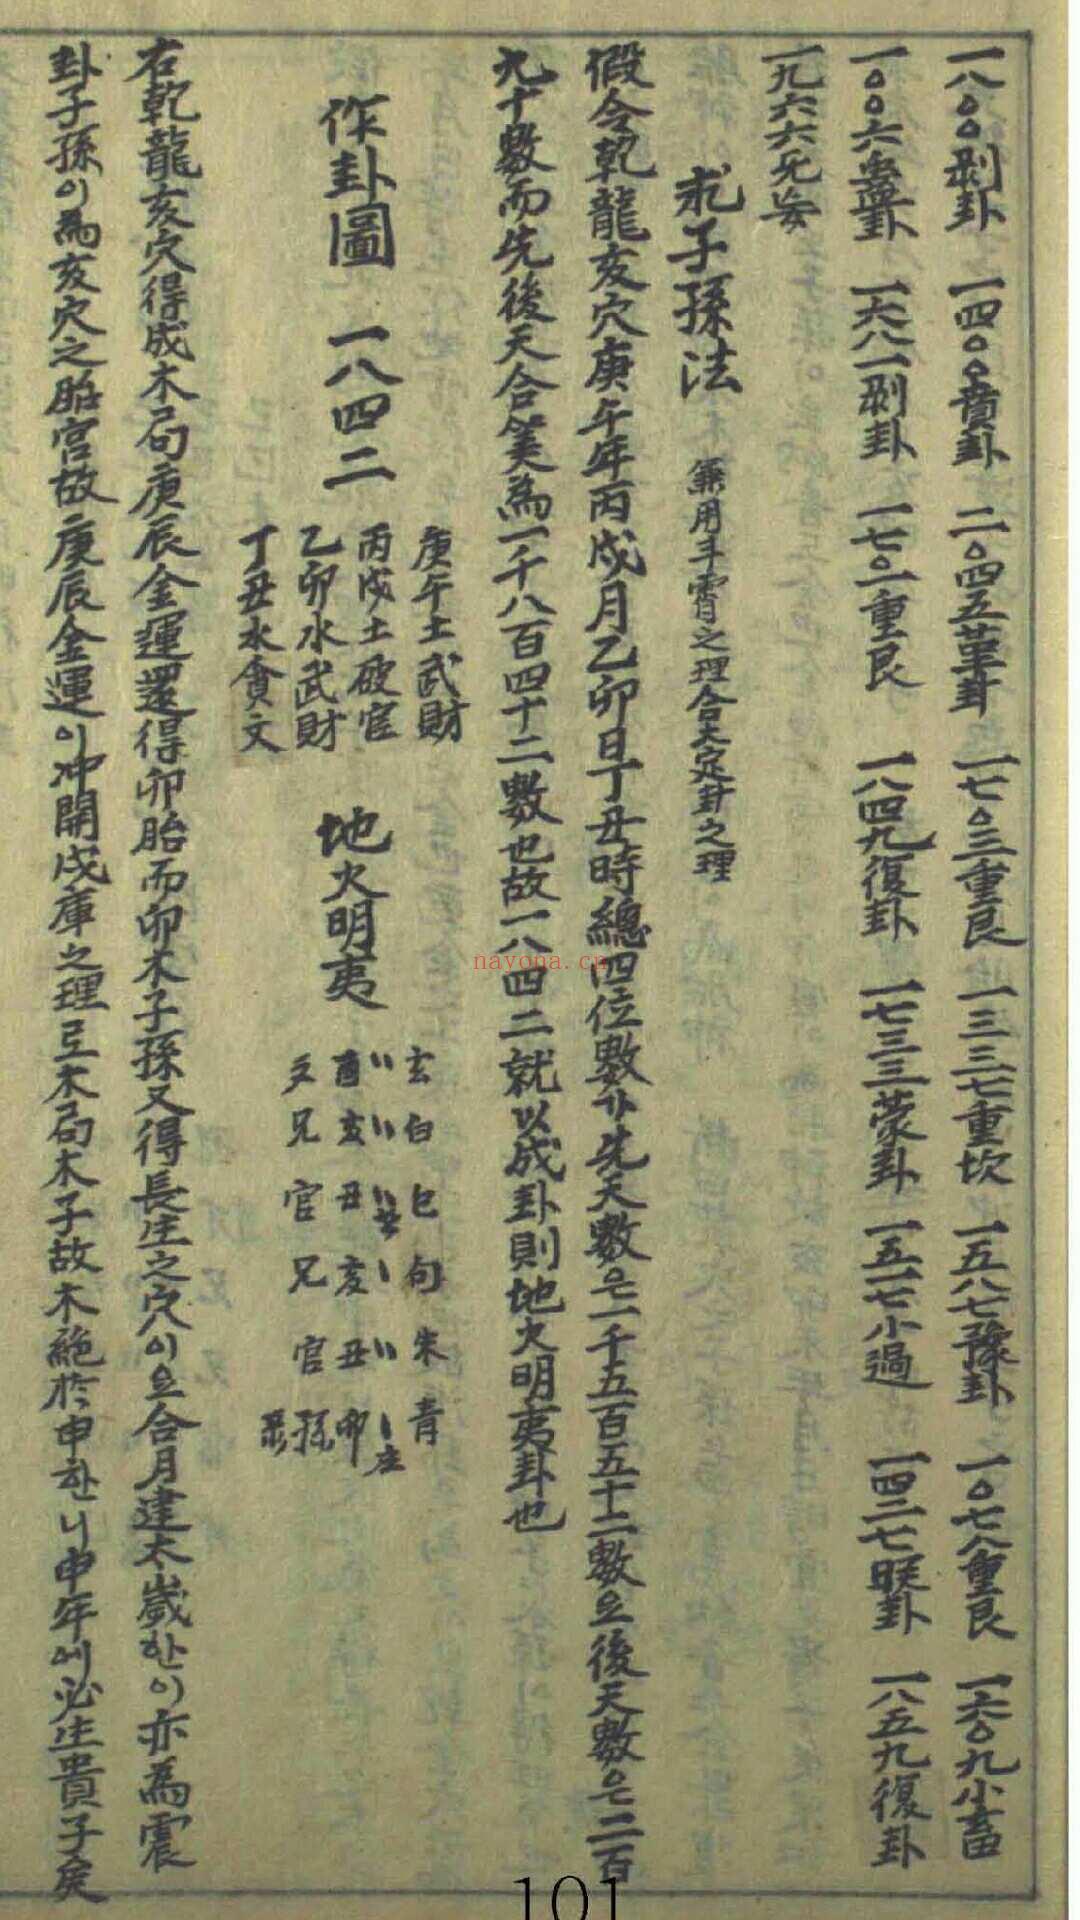 一八〇〇剝卦 一四〇〇賁卦 二〇四五革卦 一七〇三重艮 一三三七重坎 一五八七豫卦 一〇七八重艮 一六〇九小畜
一〇〇六蠱卦 一六八一剝卦 一七〇一重艮 一八四九復卦 一七三三蒙卦 一五一七小過 一四二七睽卦 一八五九復卦
一九六六无妄
求子孫法 兼用斗霄之理合天定卦之理
假令乾龍亥穴庚午年丙戌月乙卯日丁丑時總四位數가先天數은一千五百五十二數요後天數은二百
九十數而先後天合筭為一千八百四十二數也故一八四二就以成卦則地火明夷卦也
作卦圖 一八四二
庚午土武財
丙戌土破官
乙卯水武財
丁丑水貪文
地火明夷
玄白巳句朱青
酉亥丑亥丑卯
父兄官兄官孫
右乾龍亥穴得成木局庚辰金運還得卯胎而卯木子孫又得長生之穴이요合月建太歲한이亦為震
卦子孫이為亥穴之胎宮故庚辰金運이冲開戌庫之理요木局木子故木絶於申한니申年에必生貴子矣
nayona.cn
101